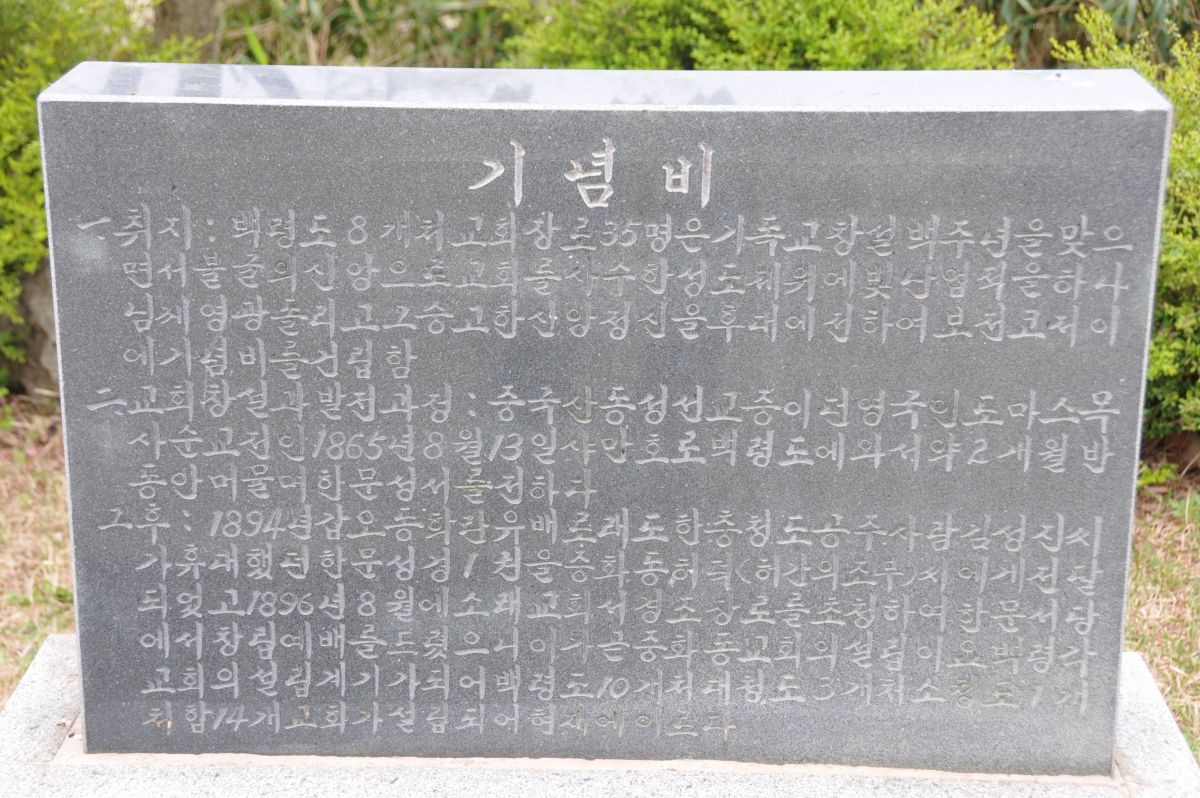 기념비
一.취지:백령도8개처교회장로35명은기독교창설백주년을맞으
면서불굴의신앙으로교회를사수한성도제위에빛난업적을하나
님께영광돌리고그숭고한신앙정신을후대에전하여보전코저이
에기념비를건립함
二.교회창설과발전과정:중국산동성선교중이던영국인토마스목
사순교전인1865년8월13일샤만호로백령도에와서약2개월반
동안머물며한문성서를전하다
그후:1894년삼오동화란유배로래도한충청도공주사람김성진씨
가휴대했던한문성경1권을중화동허득(허간의조부)씨에게전달
되었고1896년8월에소래교회서경조장로를초청하여한문서당
에서창립예배를드렸으니이가곧중화동교회의설립이요백령각
교회의설립계기가되어백령도10개처대청도3개처소청도1개
처함14개교회가설립되어현재에이르다